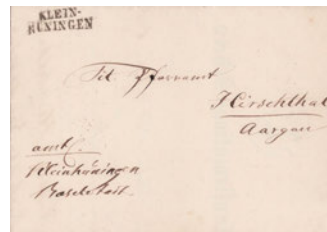 KLEIN-
HÜNINGEN
Tit. Pfarramt
Hirschthal
Aargau
amtl.
Kleinhüningen
Baselstadt.